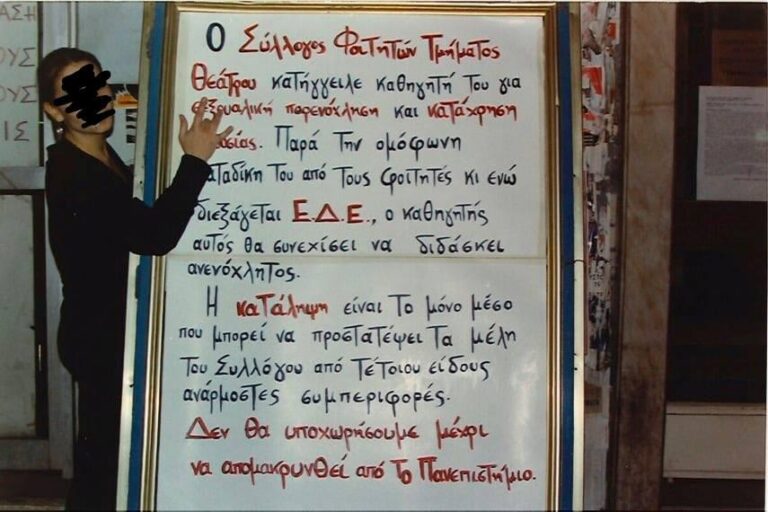 ΑΣΗ
ΟΥΣ
ΟΥΣ
ΙΣ
Ο Σύλλογος Φοιτητών Τμήματος
Θεάτρου κατήγγειλε καθηγητή του για
σεξουαλική παρενόχληση και κατάχρηση
σίας. Παρά την ομόφωνη
αταδίκη του από τους φοιτητές κι ενώ
διεξάγεται Ε.Δ.Ε., ο καθηγητής
αυτός θα συνεχίσει να διδάσκει
ανενόχλητος.
Η κατάληψη είναι το μόνο μέσο
που μπορεί να προστατέψει τα μέλη
του Συλλόγου από τέτοιου είδους
ανάρμοστες συμπεριφορές.
Δεν θα υποχωρήσουμε μέχρι
να απομακρυνθεί από το Πανεπιστήμιο.